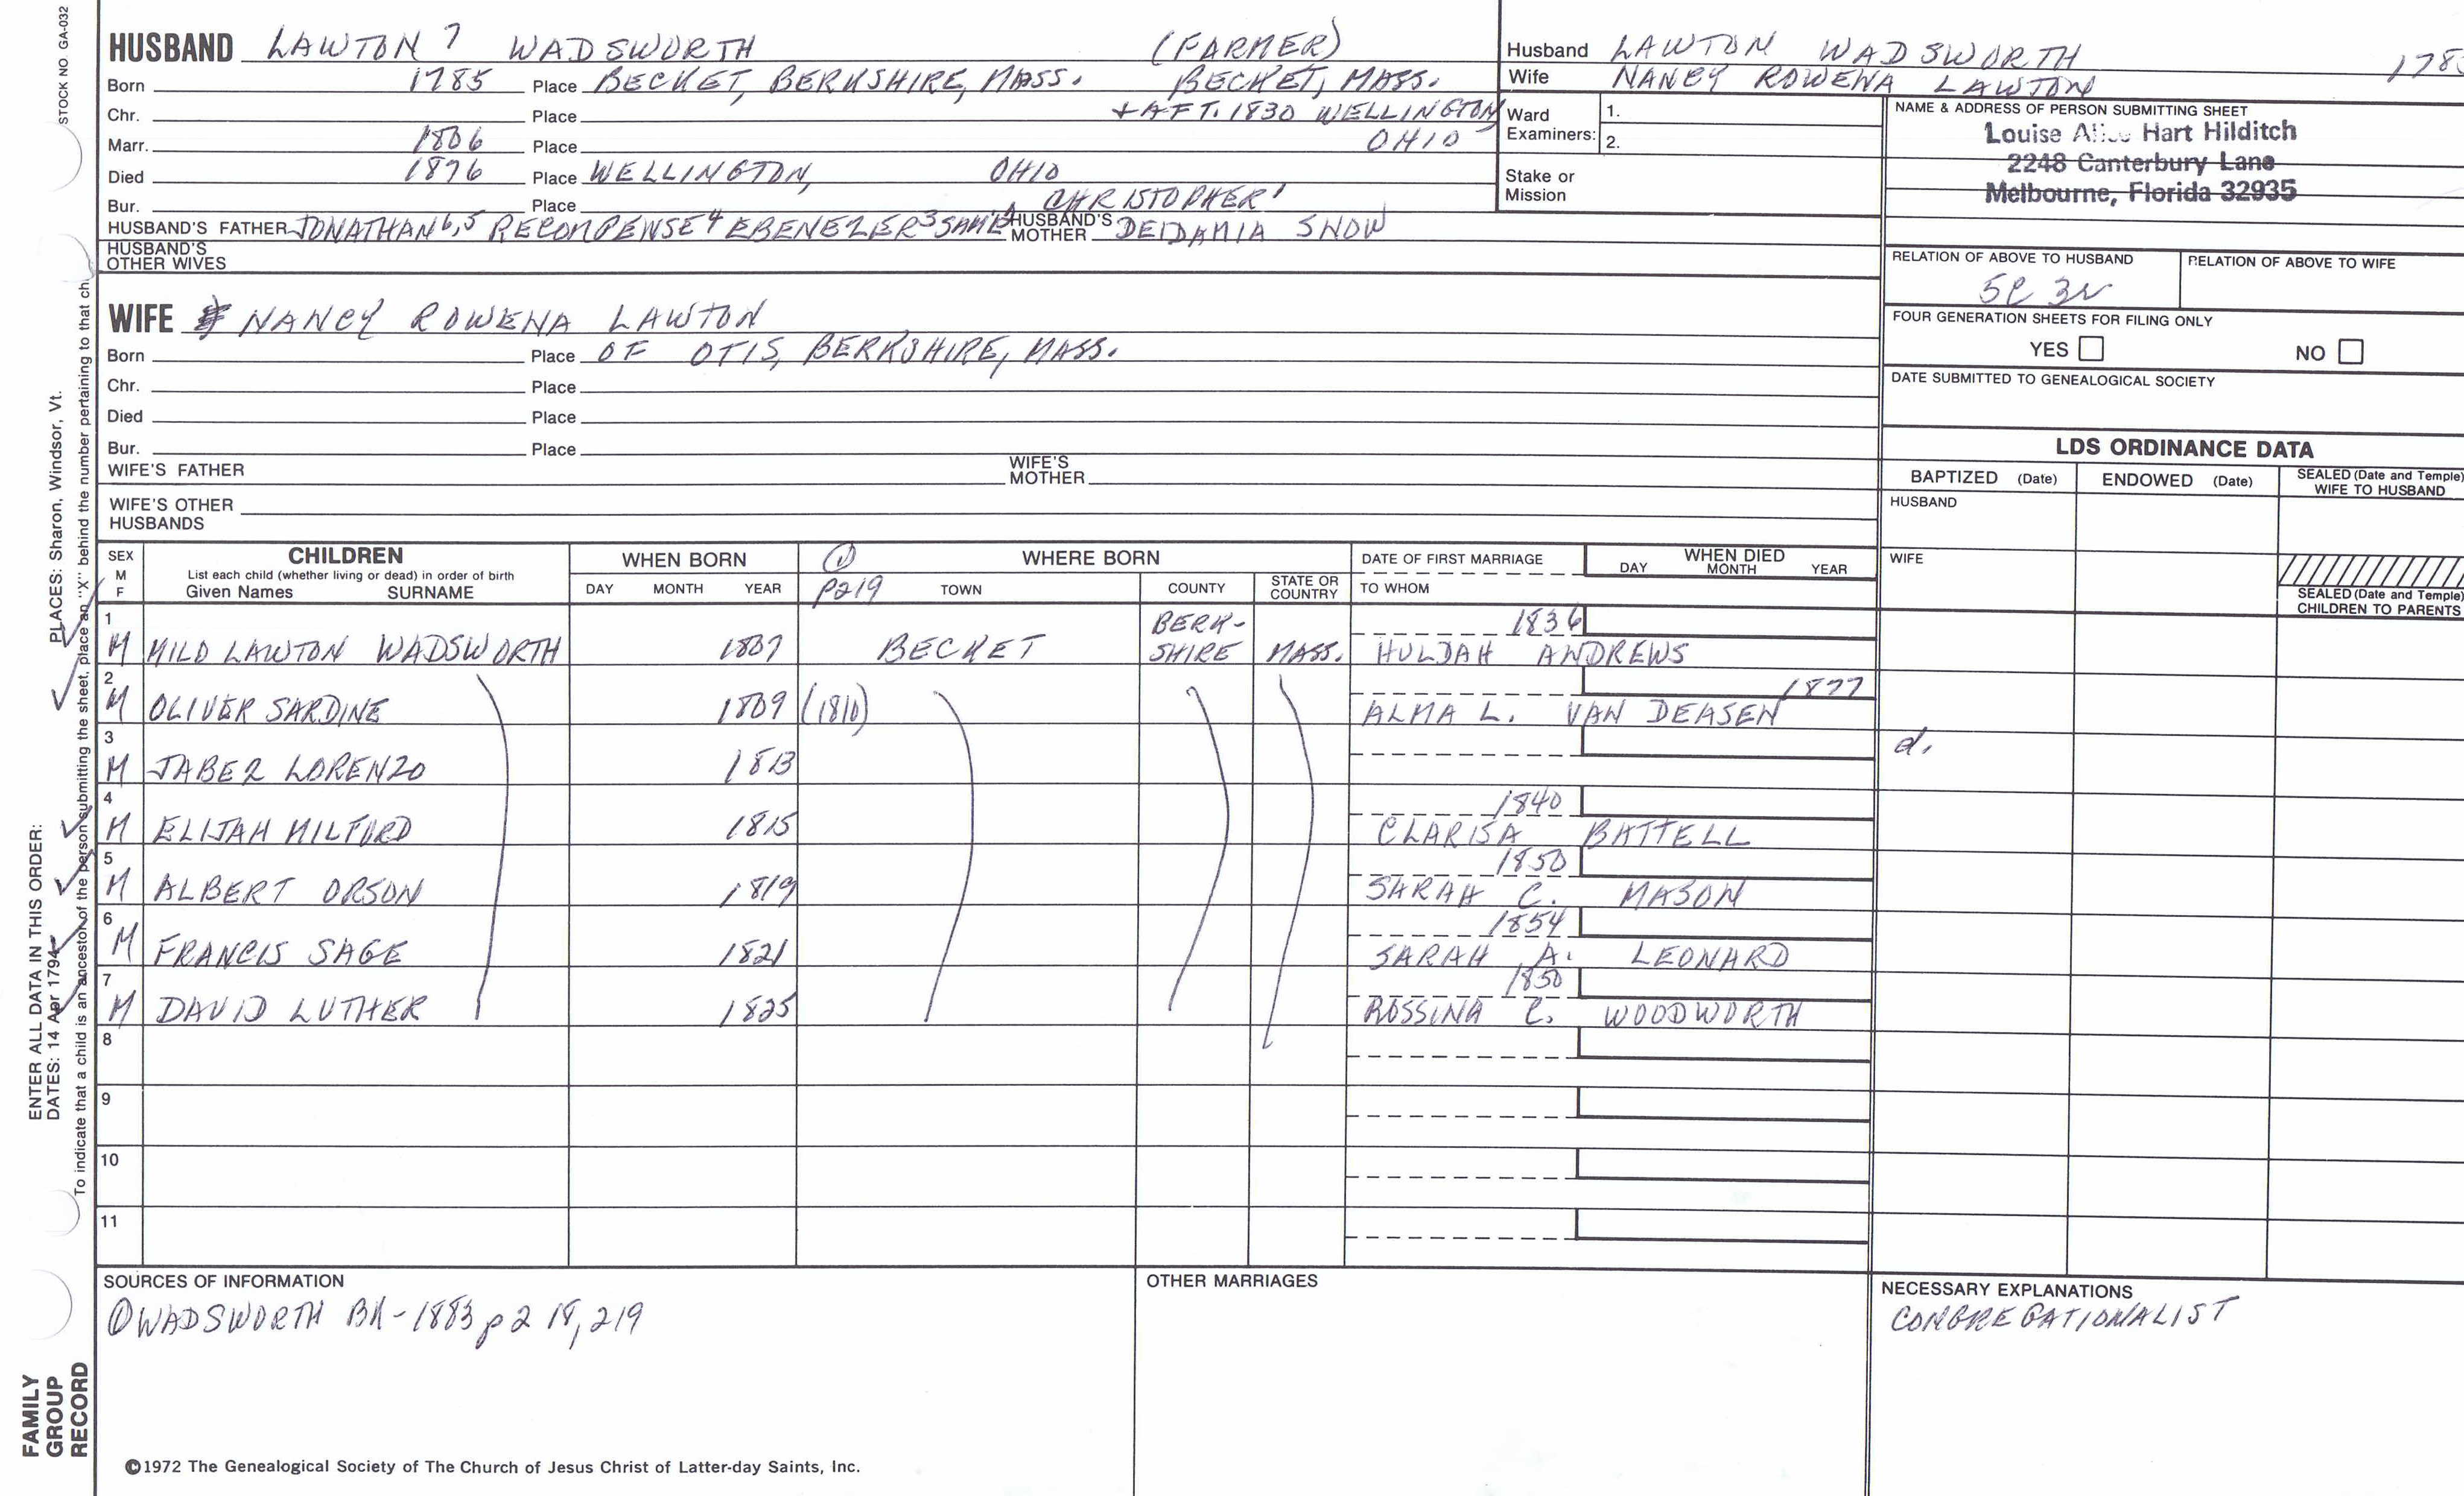 STOCK NO GA-032
HUSBAND LAWTON 7 WADSWORTH (FARMER)
Born 1785 Place BECKET, BERKSHIRE, MASS. BECKET, MASS.
Chr. Place + AFT. 1830 WELLINGTON
Marr. 1806 Place OHIO
Died 1876 Place WELLINGTON, OHIO
Bur. Place CHRISTOPHER 1
HUSBAND'S FATHER JONATHAN 6,5 RECOMPENSE 4 EBENEZER 3 HUSBAND'S MOTHER DEIDAMIA SNOW
HUSBAND'S OTHER WIVES
Husband LAWTON WADSWORTH
Wife NANCY ROWENA LAWTON
Ward Examiners: 1.
2.
Stake or Mission
NAME & ADDRESS OF PERSON SUBMITTING SHEET
Louise Hart Hilditch
2248 Canterbury Lane
Melbourne, Florida 32935
RELATION OF ABOVE TO HUSBAND RELATION OF ABOVE TO WIFE
5C 3r
FOUR GENERATION SHEETS FOR FILING ONLY
YES NO
DATE SUBMITTED TO GENEALOGICAL SOCIETY
WIFE NANCY ROWENA LAWTON
Born Place OF OTIS, BERKSHIRE, MASS.
Chr. Place
Died Place
Bur. Place
WIFE'S FATHER WIFE'S MOTHER
WIFE'S OTHER HUSBANDS
LDS ORDINANCE DATA
BAPTIZED (Date) ENDOWED (Date) SEALED (Date and Temple) WIFE TO HUSBAND
HUSBAND
WIFE
SEALED (Date and Temple) CHILDREN TO PARENTS
SEX M F
CHILDREN
List each child (whether living or dead) in order of birth
Given Names SURNAME
WHEN BORN
DAY MONTH YEAR
1 p219
WHERE BORN
TOWN COUNTY STATE OR COUNTRY
DATE OF FIRST MARRIAGE
TO WHOM
WHEN DIED
DAY MONTH YEAR
1 M MILO LAWTON WADSWORTH 1807 BECKET BERK-SHIRE MASS. 1836 HULDAH ANDREWS
2 M OLIVER SARDINE 1809 (1810) ALMA L. VAN DEASEN 1877
3 M JABER LORENZO 1813 d.
4 M ELIJAH MILFORD 1815 1840 CLARISA BATTELL
5 M ALBERT ORSON 1819 1850 SARAH C. MASON
6 M FRANCIS SAGE 1821 1854 SARAH A. LEONARD
7 M DAVID LUTHER 1825 1850 ROSSINA C. WOODWORTH
8
9
10
11
SOURCES OF INFORMATION
① WADSWORTH BK-1883 p218,219
OTHER MARRIAGES
NECESSARY EXPLANATIONS
CONGREGATIONALIST
©1972 The Genealogical Society of The Church of Jesus Christ of Latter-day Saints, Inc.
FAMILY GROUP RECORD
ENTER ALL DATA IN THIS ORDER:
DATES: 14 Apr 1794
PLACES: Sharon, Windsor, Vt.
To indicate that a child is an ancestor of the person submitting the sheet, place an "X" behind the number pertaining to that ch